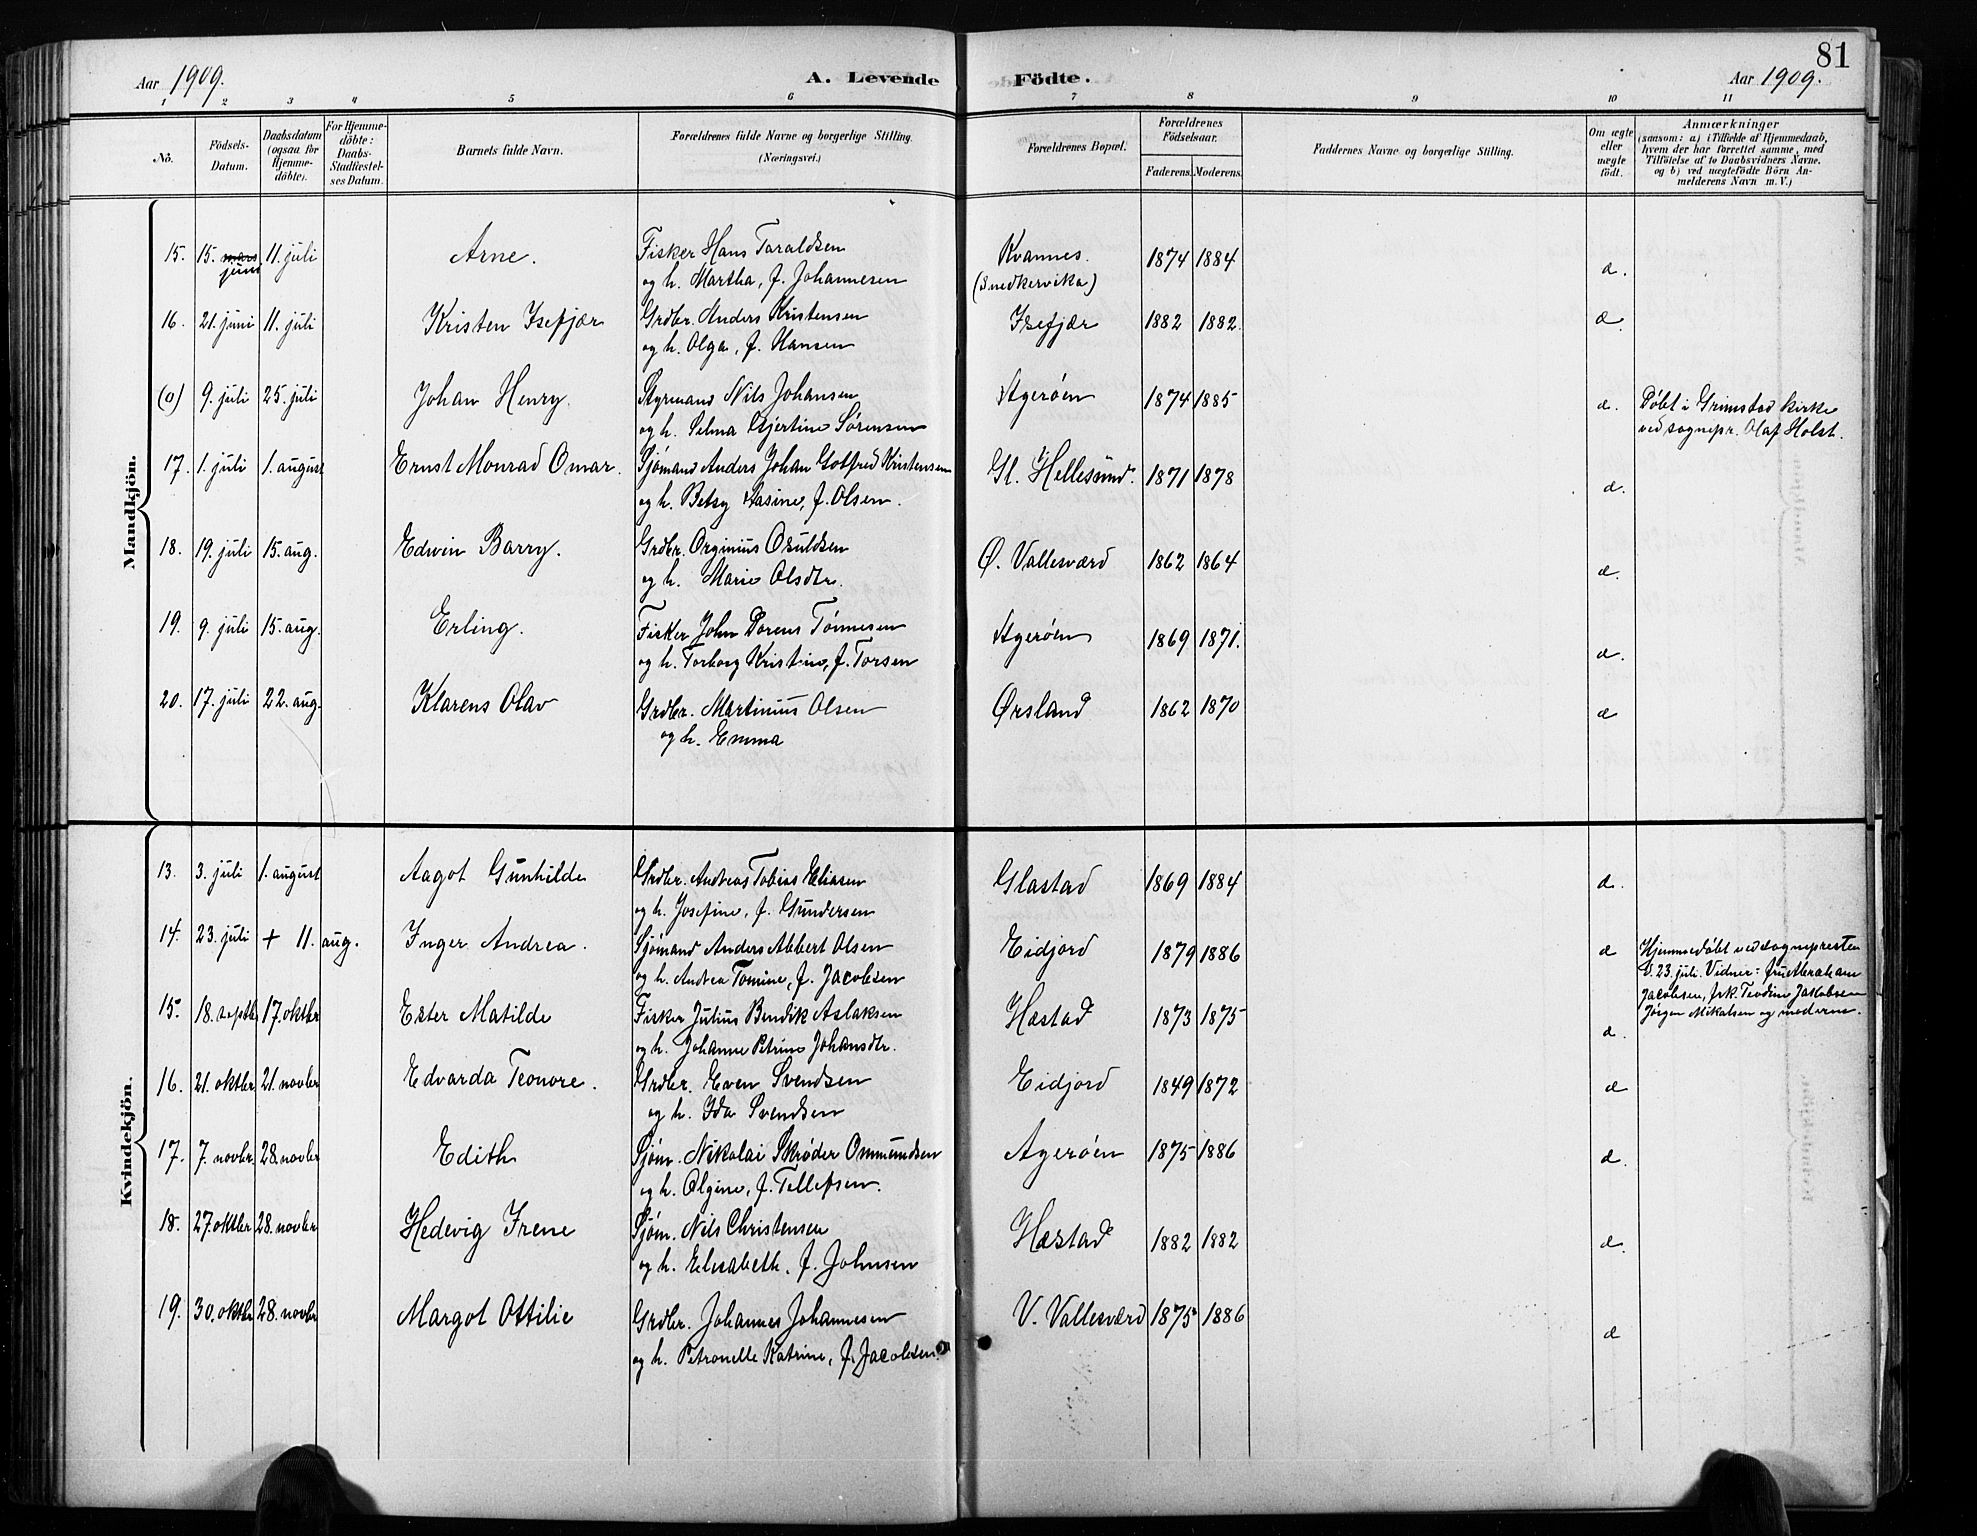 81
Aar 1909. A. Levende Födte. Aar 1909.
1 2 3 4 5 6 7 8 9 10 11
No. Födsels-Datum. Daabsdatum (ogsaa for Hjemme-döbte). For Hjemme-döbte: Daabs-Stadfæstel-ses Datum. Barnets fulde Navn. Forældrenes fulde Navne og borgerlige Stilling. (Næringsvei.) Forældrenes Bopæl. Forældrenes Födselsaar. Faderens. Moderens. Faddernes Navne og borgerlige Stilling. Om ægte eller uægte födt. Anmærkninger (saasom: a) i Tilfælde af Hjemmedaab, hvem der har forrettet samme, med Tilföielse af to Daabsvidners Navne. og b) ved uægtefödte Börn An-melderens Navn m. V.)
Mandkjön.
15. 15. mars juni 11. juli Arne. Fisker Hans Taraldsen Kvannes. 1874 1884 æ.
og h. Martha, f. Johannesen (Snedkervika)
16. 21. juni 11. juli Kristen Isefjær Grdbr. Anders Kristensen Isefjær 1882 1882. æ.
og h. Olga, f. Hansen
(0) 9. juli 25. juli Johan Henry. Styrmand Nils Johansen Agerøen 1874 1885 æ. Døbt i Grimstad kirke
og h. Selma Gjertine Sørensen ved sognepr. Olaf Holst.
17. 1. juli 1. august Ernst Monrad Omar. Sjømand Anders Johan Gotfred Kristensen Gl. Hellesund. 1871 1878 æ.
og h. Betsy Aasine, f. Olsen.
18. 19. juli 15. aug. Edwin Barry. Grdbr. Orginius Osuldsen Ø. Vallesværd 1862 1864 æ.
og h. Marie Olsdtr.
19. 9. juli 15. aug. Erling. Fisker John Dorens Tønnesen Agerøen 1869 1871. æ.
og h. Torborg Kristine, f. Torsen
20. 17. juli 22. aug. Klarens Olav Grdbr. Martinius Olsen Ørsland 1862 1870 æ
og h. Emma
Kvindekjön.
13. 3. juli 1. august Aagot Gunhilde Grdbr. Andreas Tobias Eliasen Glastad 1869 1884 æ.
og h. Josefine, f. Gundersen
14. 23. juli + 11. aug. Inger Andrea. Sjømand Anders Abbert Olsen Eidjord 1879 1886 æ Hjemmedøbt ved sognepresten
og h. Andrea Tomine, f. Jacobsen d. 23. juli. Vidner: fru Abraham
Jacobsen, frk. Teodine Jakobsen
Jørgen Mikalsen og moderen.
15. 18. septb. 17. oktbr Ester Matilde Fisker Julius Bendik Aslaksen Hæstad 1873 1875 æ.
og h. Johanne Petrine Johansdtr.
16. 21. oktbr 21. novbr Edvarda Teonore. Grdbr. Even Svendsen Eidjord 1849 1872 æ
og h. Ida Svendsen
17. 7. novbr. 28. novbr Edith Sjøm. Nikolai Skrøder Ommundsen Agerøen 1875 1886 æ.
og h. Olgine, f. Tellefsen.
18. 27. oktbr 28. novbr Hedevig Irene Sjøm. Nils Christensen Hæstad 1882 1882 æ.
og h. Elisabeth. f. Johnsen
19. 30. oktbr 28. novbr Margot Ottilie Grdbr. Johannes Johannesen V. Vallesværd 1875 1886 æ
og h. Petronelle Katrine, f. Jacobsen.